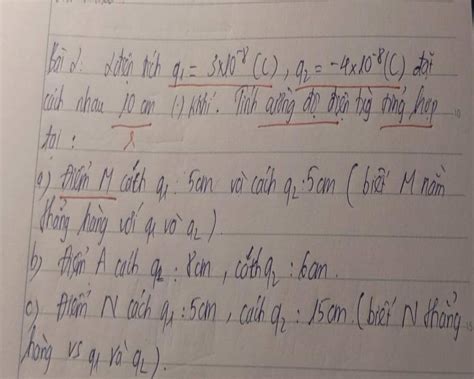 Bài 2: 2 điện tích q₁ = 3x10⁻⁸ (C), q₂ = -4x10⁻⁸ (C) đặt
cách nhau 10 cm (.) k khí. Tính cường độ điện trg tổng hợp
tại :
a) Điểm M cách q₁ : 5cm và cách q₂ : 5cm ( biết M nằm
thẳng hàng với q₁ và q₂ ).
b) Điểm A cách q₂ : 8cm, cách q₂ : 6cm.
c) Điểm N cách q₁ : 5cm, cách q₂ : 15cm. ( biết N thẳng
hàng vs q₁ và q₂ ).